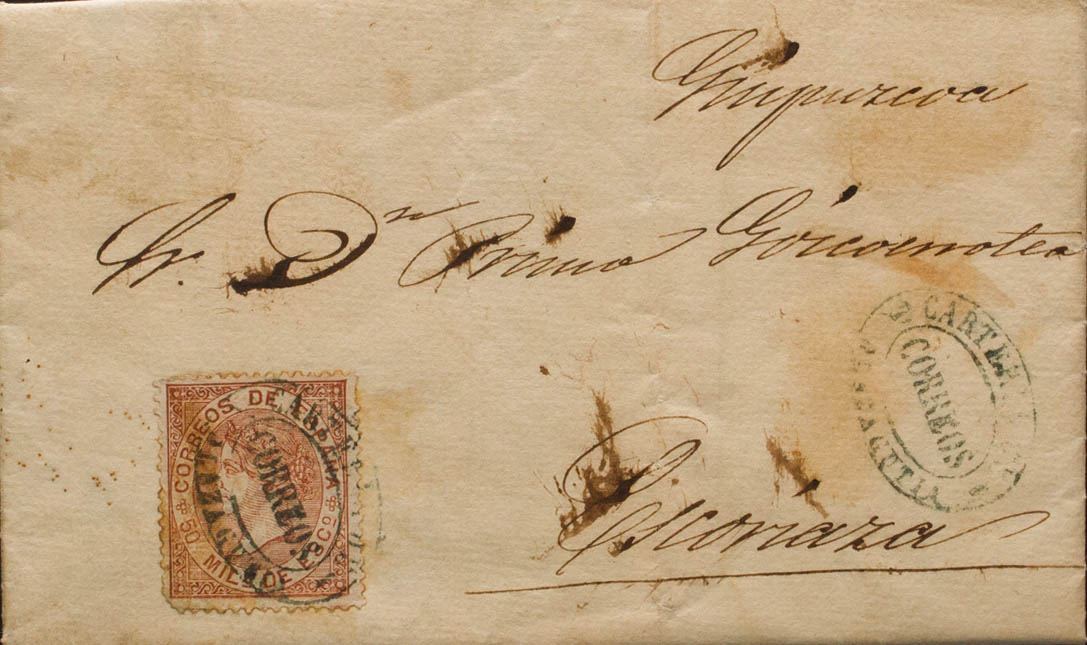 Guipuzcoa
Sr. Dn Primo Goicoerrotea
Escoriaza
CORREOS DE ESPAÑA
50 MILS DE ESCO
CORREOS
CARTERIA
CORREOS